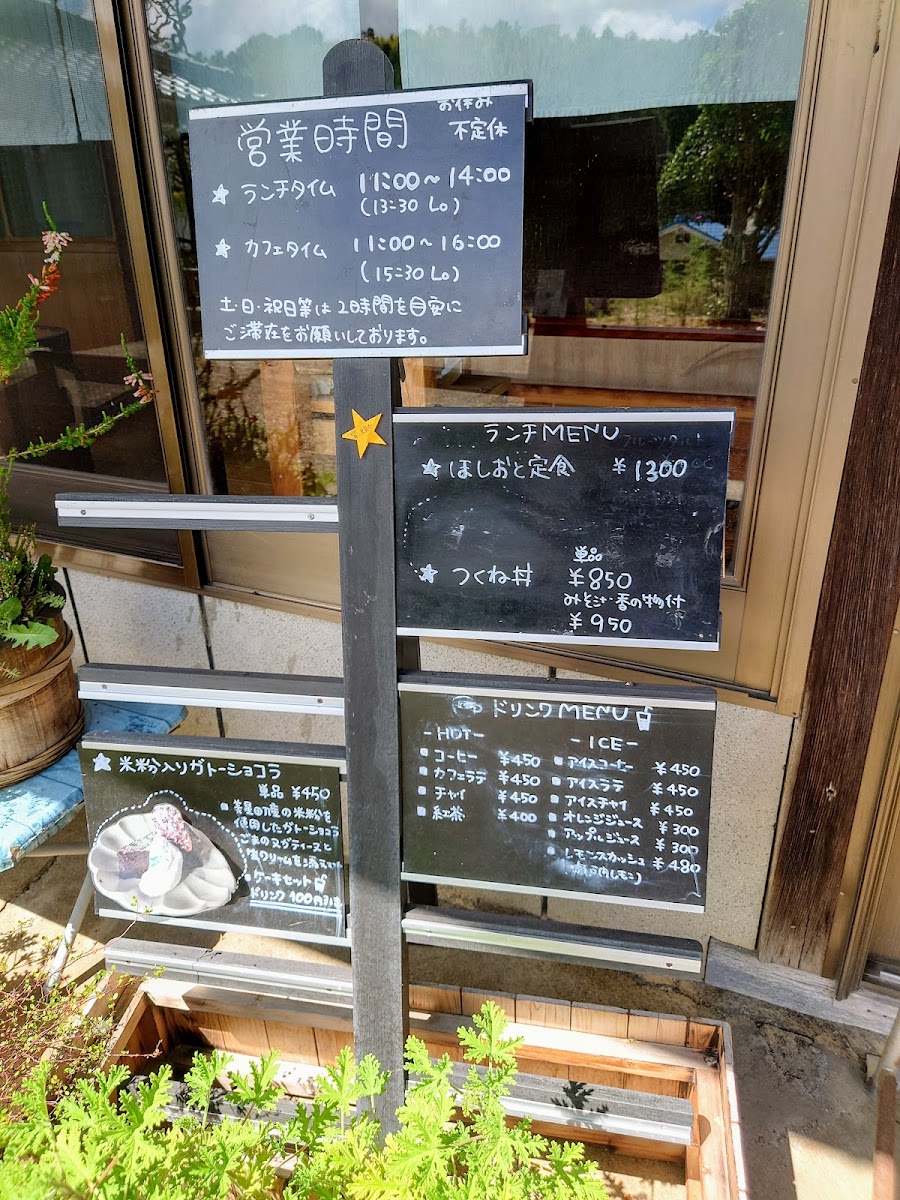 お休み
不定休
営業時間
☆ ランチタイム 11:00〜14:00
(13:30 Lo)
☆ カフェタイム 11:00〜16:00
(15:30 Lo)
土・日・祝日等は2時間を目安に
ご滞在をお願いしております。
ランチMENU
☆ ほしおと定食 ¥1300
単品
☆ つくね丼 ¥850
みそ汁・香の物付
¥950
☆ 米粉入りガトーショコラ
単品 ¥450
産の米粉を
使用したガトーショコラ
ごまのヌガティーヌと
生クリームを添えて
ケーキセット
ドリンク 100円引き
ドリンクMENU
-HOT-
コーヒー ¥450
カフェラテ ¥450
チャイ ¥450
紅茶 ¥400
-ICE-
アイスコーヒー ¥450
アイスラテ ¥450
アイスチャイ ¥450
オレンジジュース ¥300
アップルジュース ¥300
レモンスカッシュ ¥480
(瀬戸内レモン)